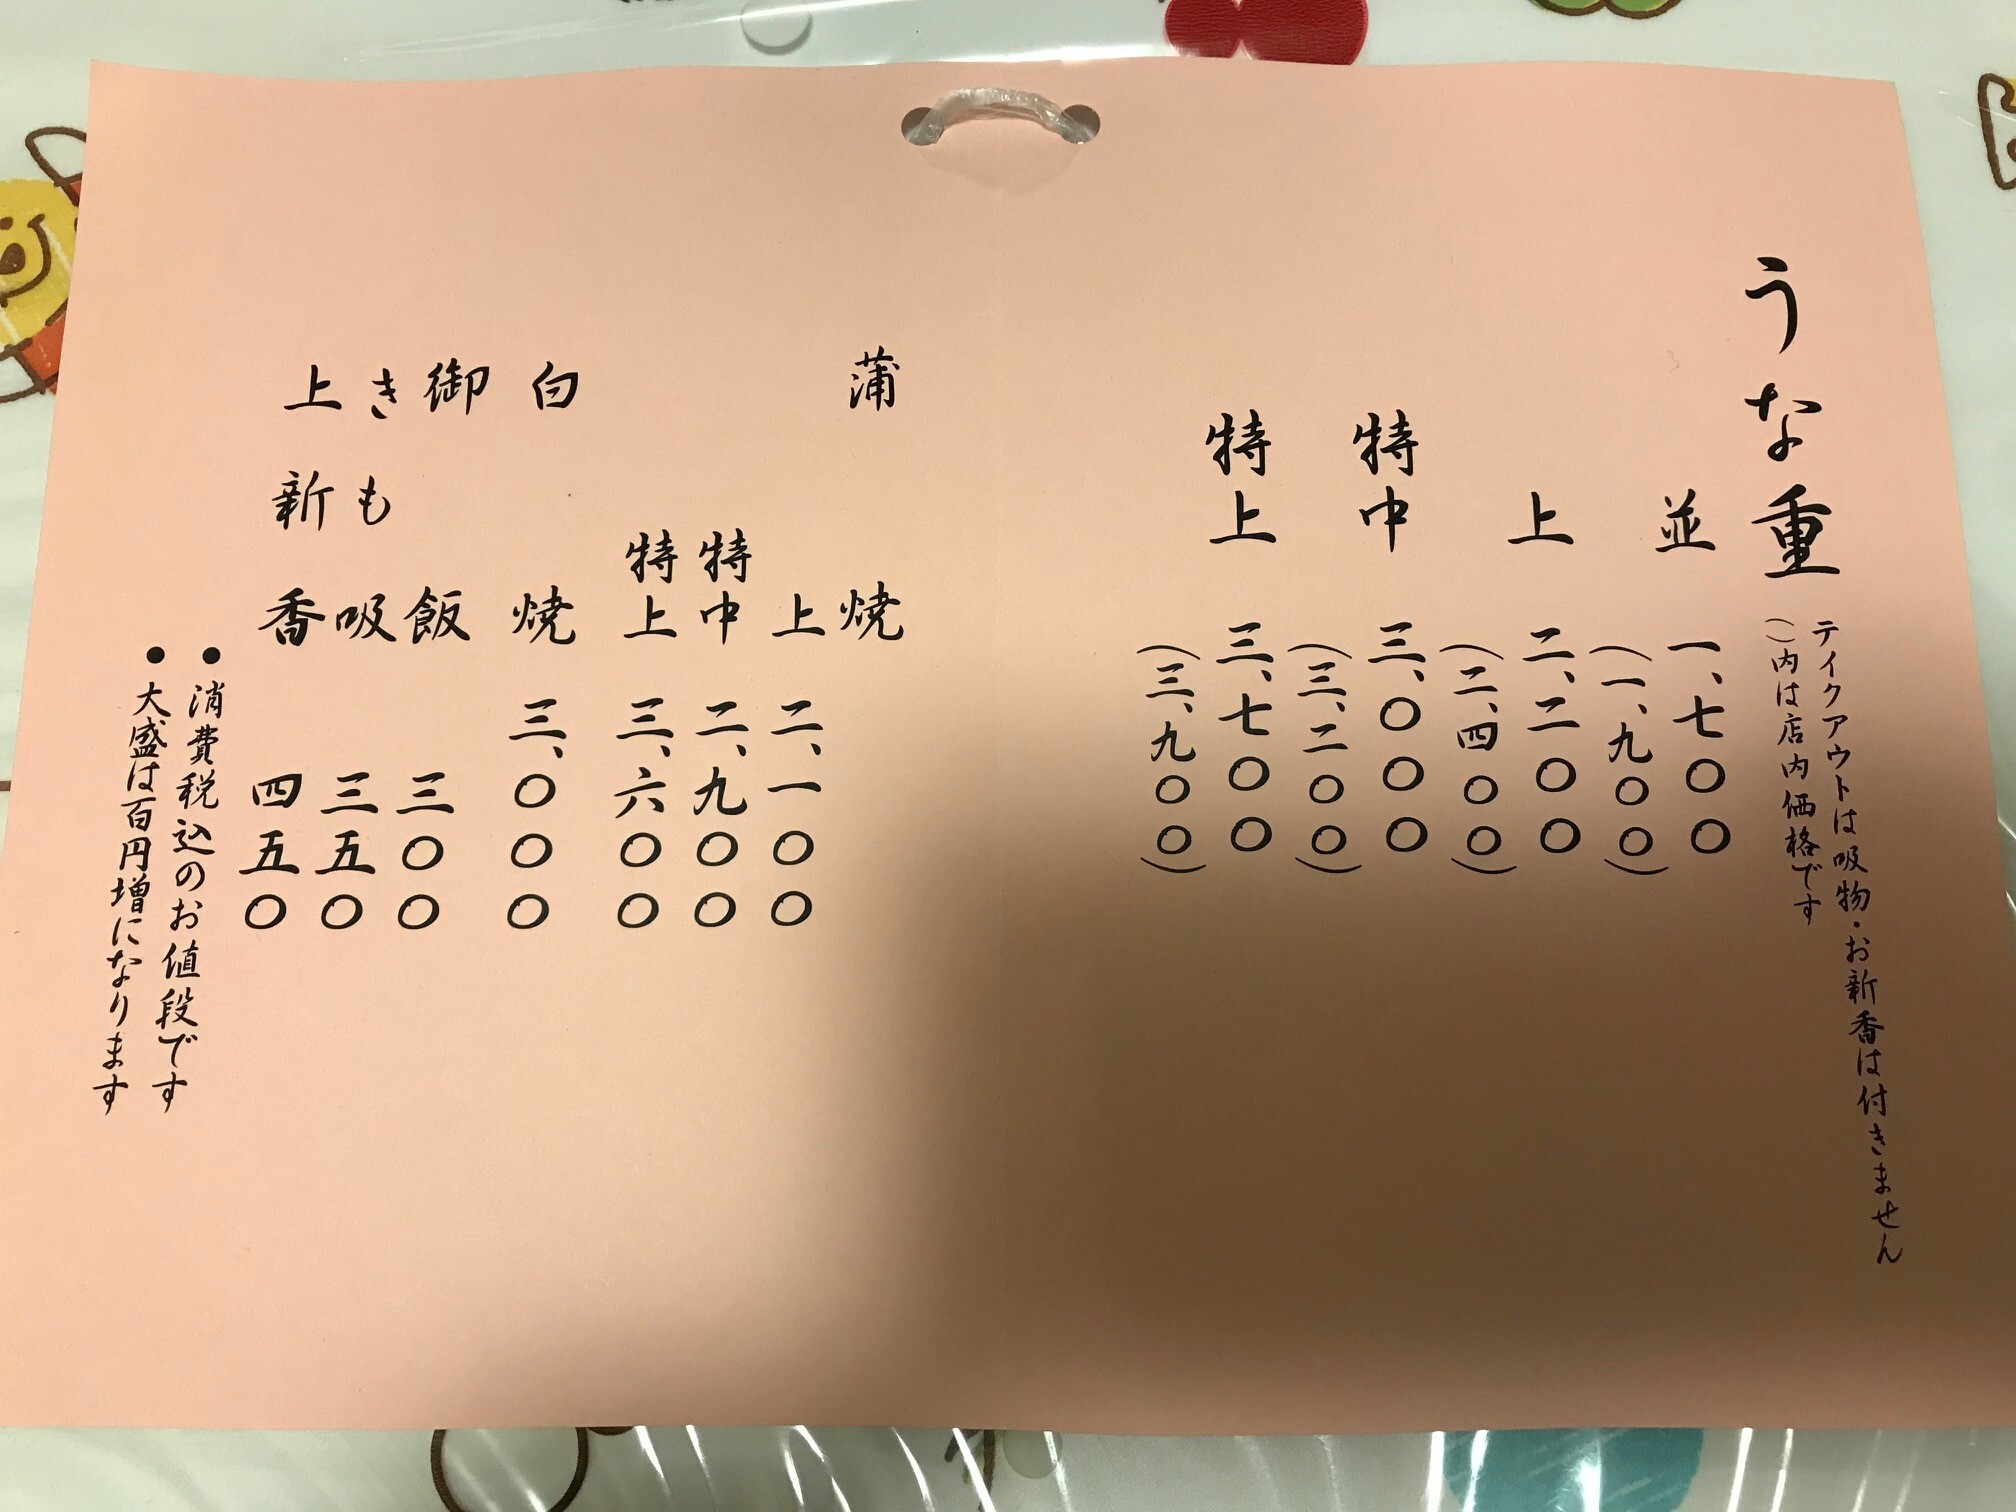 うな重
テイクアウトは吸物・お新香は付きません
（）内は店内価格です
並 一、七〇〇
（一、九〇〇）
上 二、二〇〇
（二、四〇〇）
特中 三、〇〇〇
（三、二〇〇）
特上 三、七〇〇
（三、九〇〇）
蒲焼
上 二、一〇〇
特中 二、九〇〇
特上 三、六〇〇
白焼 三、〇〇〇
御飯 三〇〇
きも吸 三五〇
上新香 四五〇
●消費税込のお値段です
●大盛は百円増になります